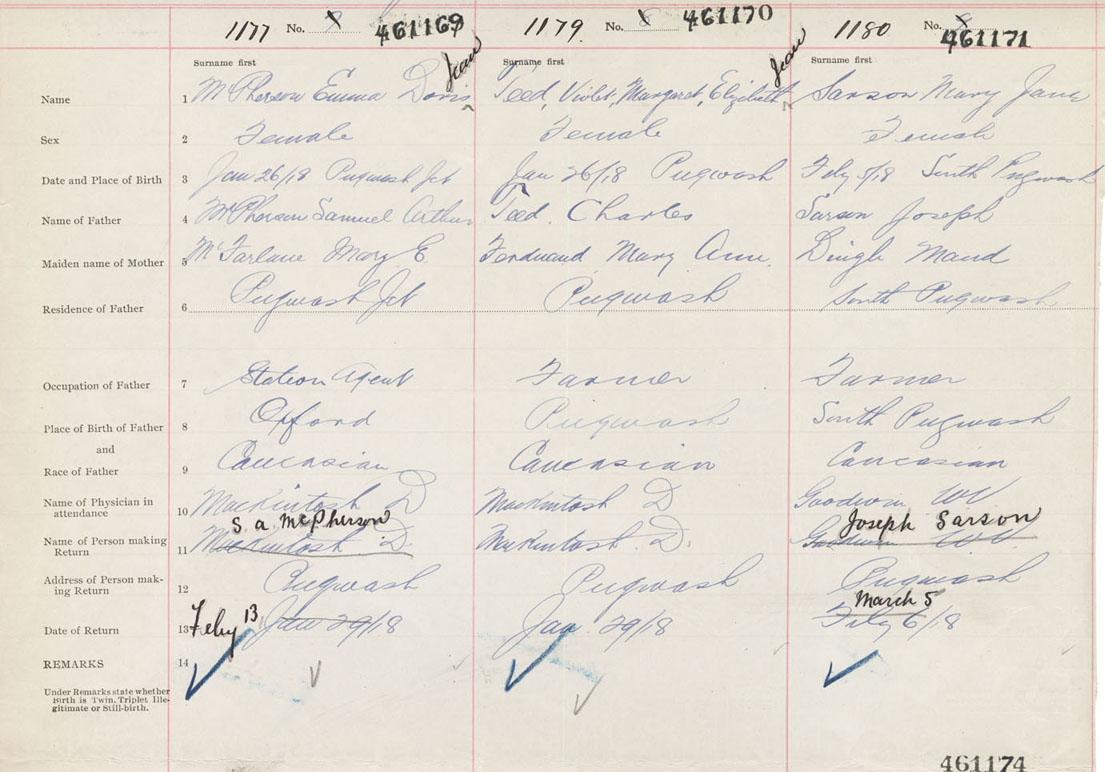 1177 No. 8 461169 1179 No. 8 461170 1180 No. 8 461171
Surname first Jean Surname first Jean Surname first
Name 1 McPherson Emma Doris Teed, Violet, Margaret, Elizabeth Sarson Mary Jane
Sex 2 Female Female Female
Date and Place of Birth 3 Jan 26/18 Pugwash Jct Jan 26/18 Pugwash Feby 5/18 South Pugwash
Name of Father 4 McPherson Samuel Arthur Teed. Charles Sarson Joseph
Maiden name of Mother 5 McFarlane Mary E Ferdinand Mary Ann. Dingle Maud
Residence of Father 6 Pugwash Jct Pugwash South Pugwash
Occupation of Father 7 Station Agent Farmer Farmer
Place of Birth of Father 8 Oxford Pugwash South Pugwash
and
Race of Father 9 Caucasian Caucasian Caucasian
Name of Physician in
attendance 10 MacKintosh D MacKintosh D Goodwin WV
S. a. McPherson Joseph Sarson
Name of Person making
Return 11 MacKintosh D. MacKintosh. D. Goodwin WV.
Address of Person mak-
ing Return 12 Pugwash Pugwash Pugwash
Feby 13 March 5
Date of Return 13 Jan 29/18 Jan. 29/18 Feby 6/18
REMARKS 14
Under Remarks state whether
Birth is Twin, Triplet Ille-
gitimate or Still-birth.
461174